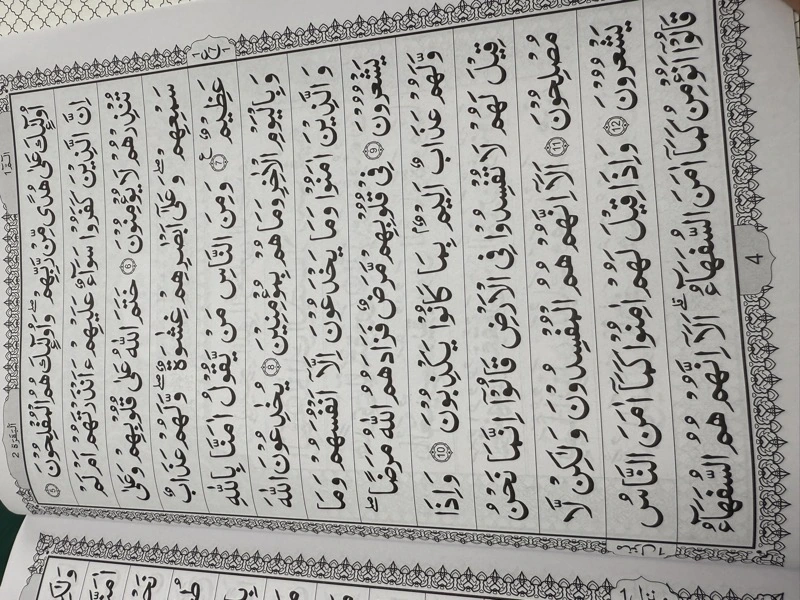 الٓمّٓ ١ البقرة 2
اُولٰٓئِكَ عَلٰى هُدًى مِّنْ رَّبِّهِمْ ۖ وَاُولٰٓئِكَ هُمُ الْمُفْلِحُوْنَ 5
اِنَّ الَّذِيْنَ كَفَرُوْا سَوَآءٌ عَلَيْهِمْ ءَاَنْذَرْتَهُمْ اَمْ لَمْ
تُنْذِرْهُمْ لَا يُؤْمِنُوْنَ 6 خَتَمَ اللّٰهُ عَلٰى قُلُوْبِهِمْ وَعَلٰى
سَمْعِهِمْ ۖ وَعَلٰٓى اَبْصٰرِهِمْ غِشٰوَةٌ ۖ وَّلَهُمْ عَذَابٌ
عَظِيْمٌ 7 وَمِنَ النَّاسِ مَنْ يَّقُوْلُ اٰمَنَّا بِاللّٰهِ
وَبِالْيَوْمِ الْاٰخِرِ وَمَا هُمْ بِمُؤْمِنِيْنَ 8 يُخٰدِعُوْنَ اللّٰهَ
وَالَّذِيْنَ اٰمَنُوْا وَمَا يَخْدَعُوْنَ اِلَّآ اَنْفُسَهُمْ وَمَا
يَشْعُرُوْنَ 9 فِيْ قُلُوْبِهِمْ مَّرَضٌ فَزَادَهُمُ اللّٰهُ مَرَضًا ۖ
وَّلَهُمْ عَذَابٌ اَلِيْمٌ بِمَا كَانُوْا يَكْذِبُوْنَ 10 وَاِذَا
قِيْلَ لَهُمْ لَا تُفْسِدُوْا فِى الْاَرْضِ قَالُوْٓا اِنَّمَا نَحْنُ
مُصْلِحُوْنَ 11 اَلَآ اِنَّهُمْ هُمُ الْمُفْسِدُوْنَ وَلٰكِنْ لَّا
يَشْعُرُوْنَ 12 وَاِذَا قِيْلَ لَهُمْ اٰمِنُوْا كَمَآ اٰمَنَ النَّاسُ
قَالُوْٓا اَنُؤْمِنُ كَمَآ اٰمَنَ السُّفَهَآءُ ۗ اَلَآ اِنَّهُمْ هُمُ السُّفَهَآءُ
4